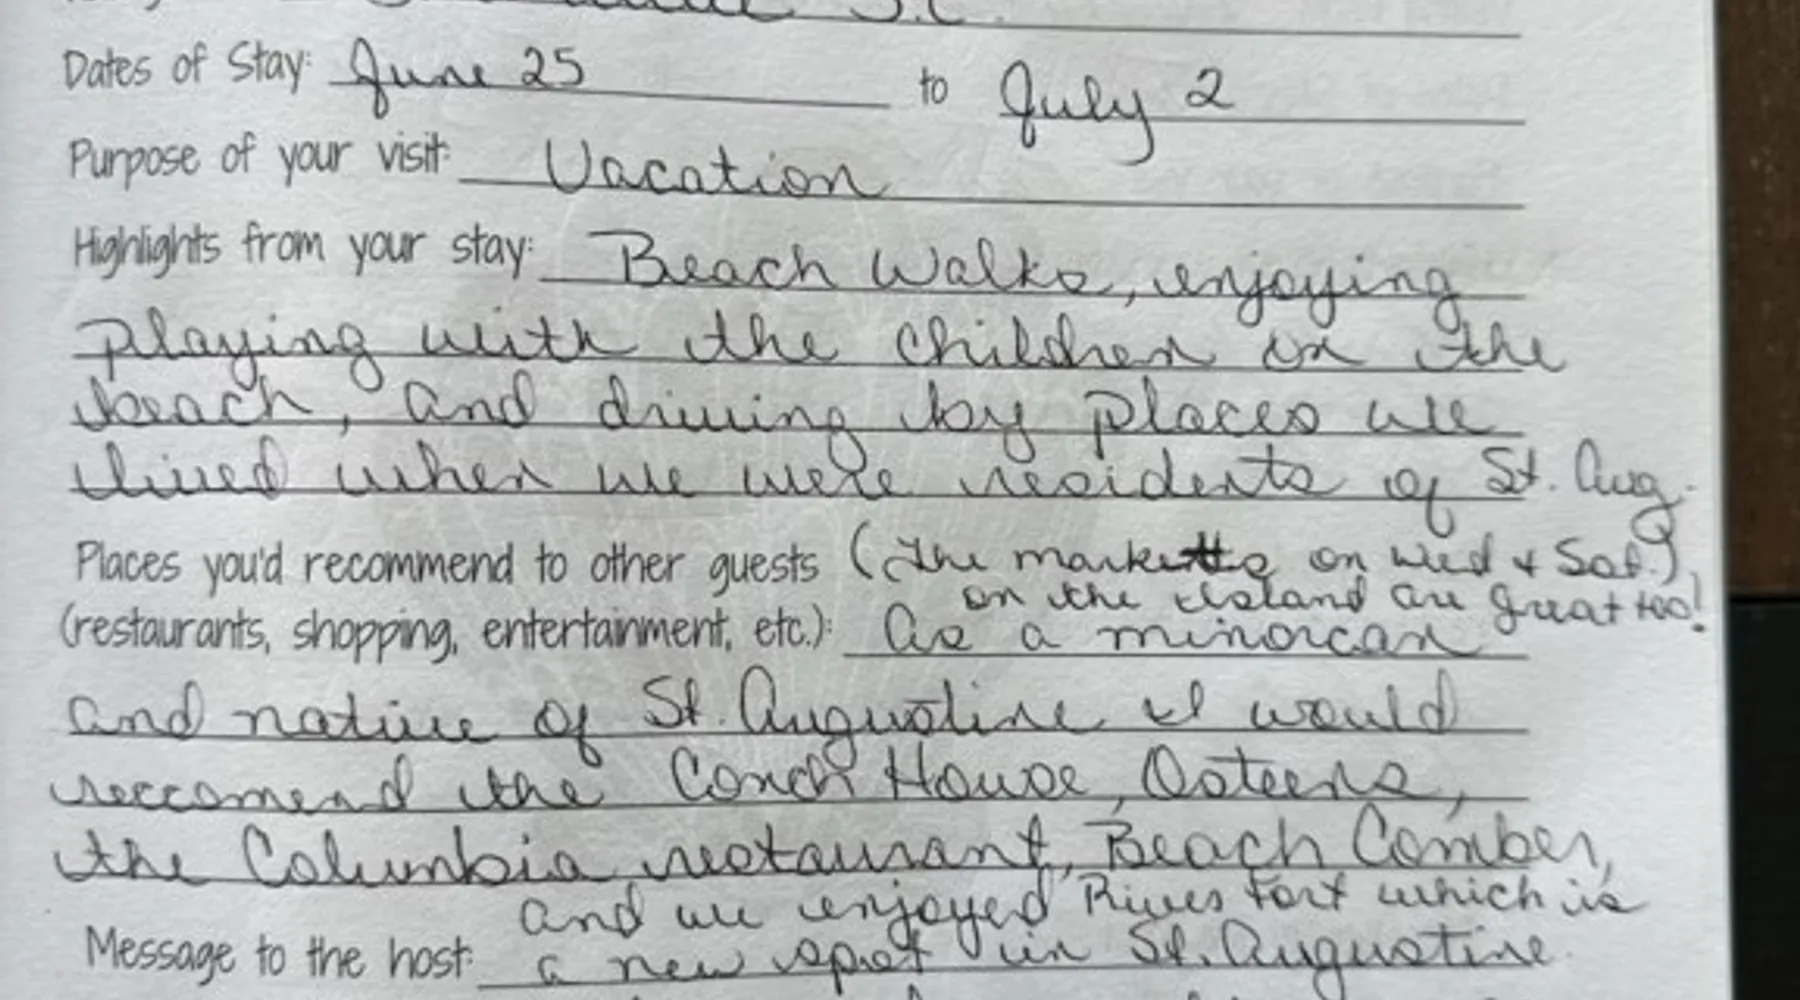 S.C.
Dates of Stay: June 25 to July 2
Purpose of your visit: Vacation
Highlights from your stay: Beach Walks, enjoying
playing with the children on the
beach, and driving by places we
lived when we were residents of St. Aug.
Places you'd recommend to other guests (the markets on Wed + Sat.)
on the island are great too!
(restaurants, shopping, entertainment, etc.): As a minorcan
and native of St. Augustine I would
reccomend the Conch House, Osteens,
the Columbia restaurant, Beach Comber,
and we enjoyed Rivers Fort which is
Message to the host: a new spot in St. Augustine.